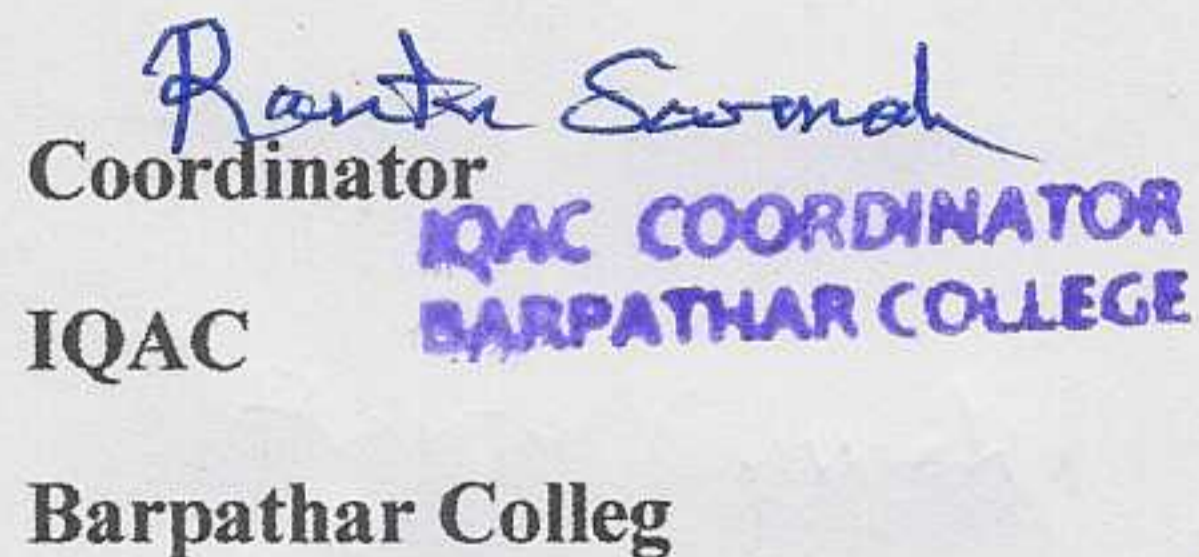 Rantu Sarmah
Coordinator
IQAC COORDINATOR
BARPATHAR COLLEGE
IQAC
Barpathar Colleg